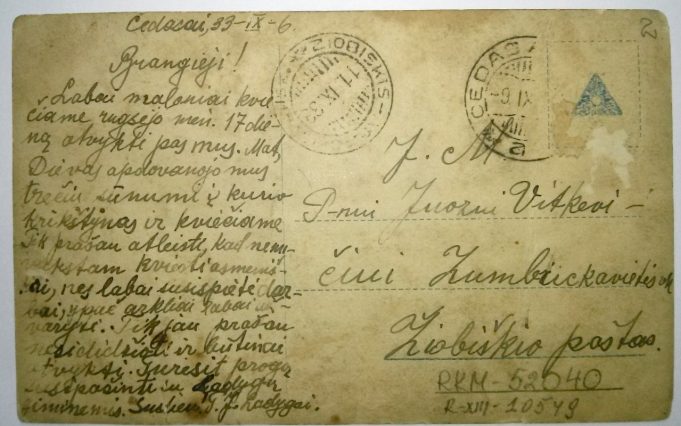 Cedasai, 33-IX-6.
Brangieji!
Labai maloniai kvie-
čiame rugsėjo mėn. 17 die-
ną atvykti pas mus. Mat,
Dievas apdovanojo mus
trečiu sūnumi į kurio
krikštynas ir kviečiame
Tik prašau atleisti, kad nenu-
kviesti asmeniš-
kai, nes labai susispietė dar-
bai, arkliai labai
Tik jau prašau
nesididžiuoti ir būtinai
atvykti. Turėsit progą
susipažinti su Ladygų
giminėmis. Sudiev. J. J. Ladygai.
ŽIOBIŠKIS
11.IX.33
CEDASAI
-9.IX
J. M.
P-nui Juozui Vitkevi-
čiui Zumbrickavietis
Žiobiškio paštas.
RKM-52040
R-XIII-10549
2